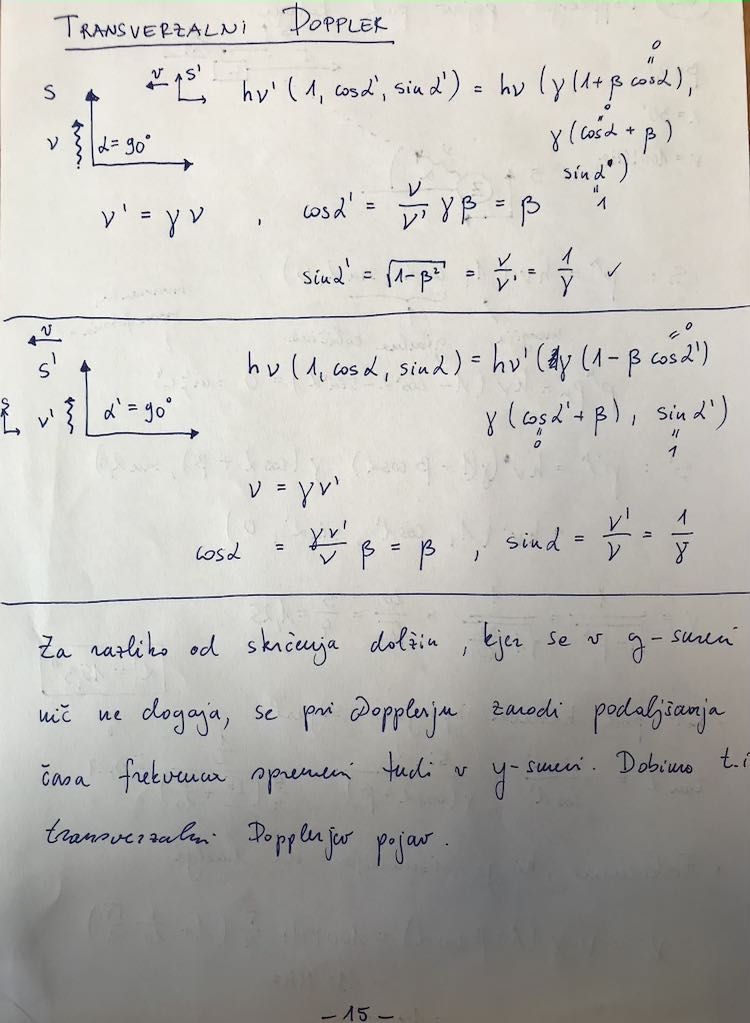 TRANSVERZALNI DOPPLER
S v S' hν' (1, cosα', sinα') = hν (γ(1+β cosα),
0
"
ν α=90° γ(cosα + β)
0
"
sinα')
"
1
ν' = γν , cosα' = ν/ν' γβ = β
sinα' = √(1-β²) = ν/ν' = 1/γ ✓
v
S' hν (1, cosα, sinα) = hν' (γ (1-β cosα')
= 0
S ν' α'=90° γ(cosα' + β), sinα')
" "
0 1
ν = γν'
cosα = γν'/ν β = β , sinα = ν'/ν = 1/γ
Za razliko od skrčenja dolžin, kjer se v y-smeri
nič ne dogaja, se pri Dopplerju zaradi podaljšanja
časa frekvenca spremeni tudi v y-smeri. Dobimo t.i
transverzalni Dopplerjev pojav.
-15-